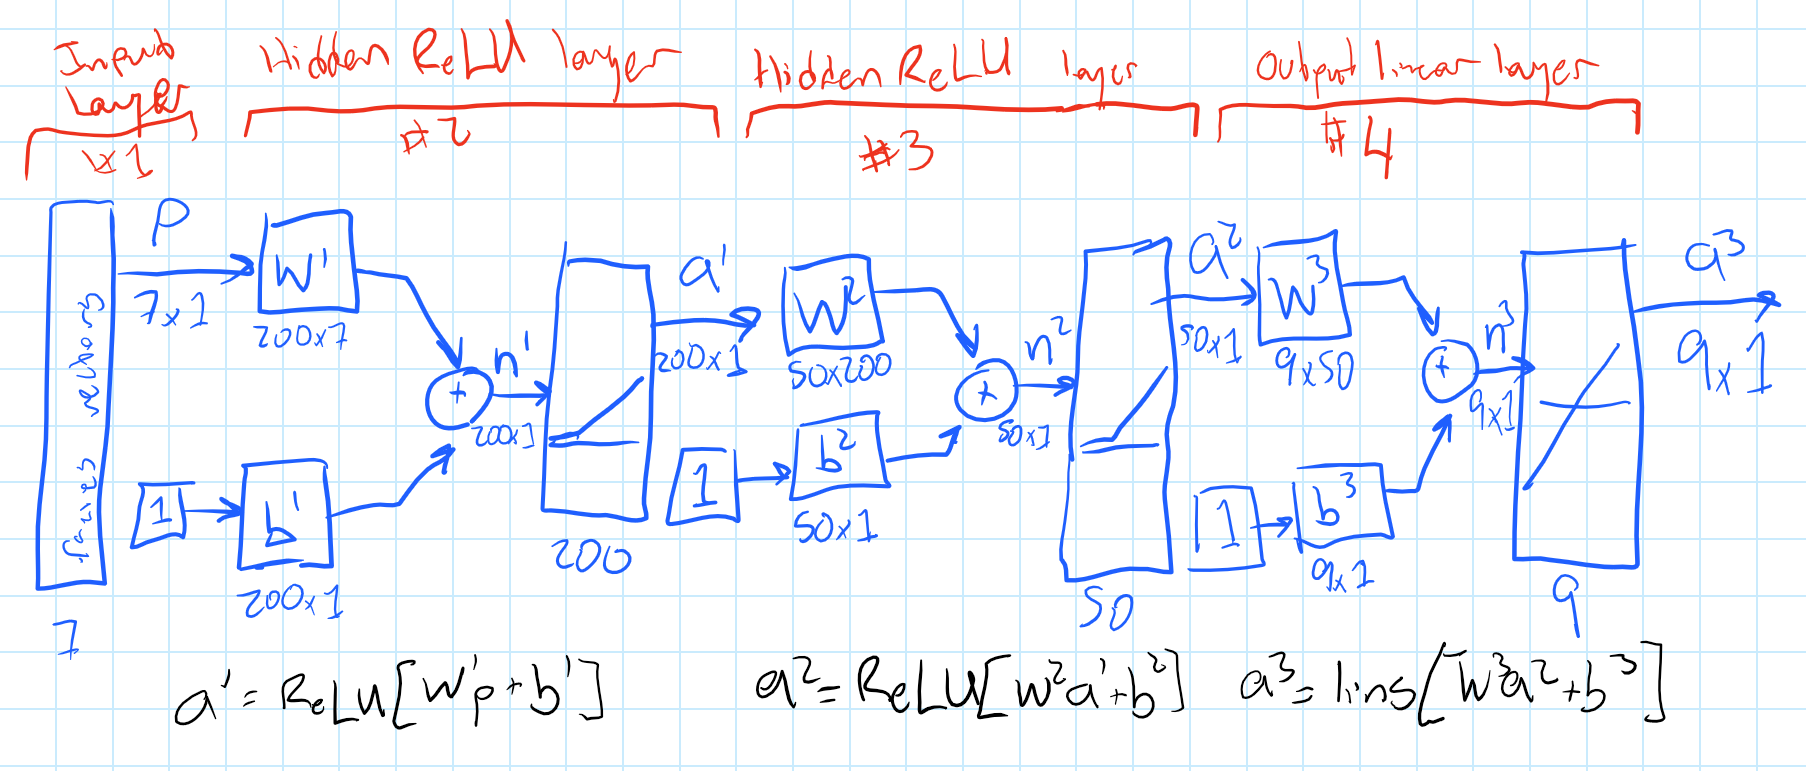 Input
Layer
#1
Hidden ReLU layer
#2
Hidden ReLU layer
#3
Output linear layer
#4
P
7x1
W¹
200x7
n¹
200x1
1
b¹
200x1
7
200
a¹
200x1
W²
50x200
n²
50x1
1
b²
50x1
50
a²
50x1
W³
9x50
n³
9x1
1
b³
9x1
9
a³
9x1
a¹=ReLU[W¹p+b¹]
a²=ReLU[W²a¹+b²]
a³=lins[W³a²+b³]